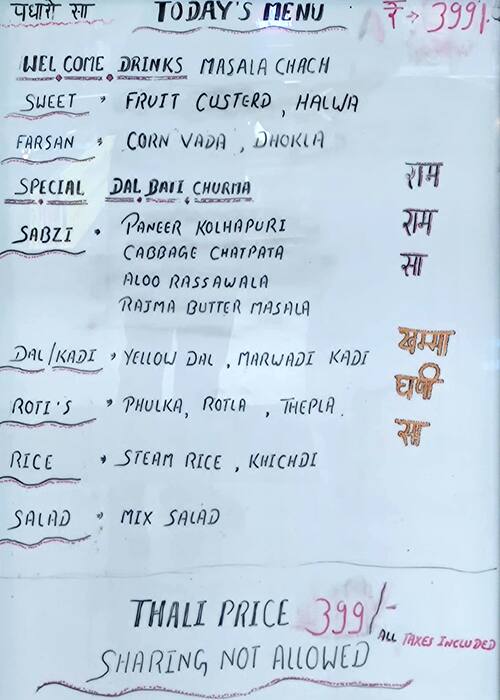 पधारो सा TODAY'S MENU ₹ → 399/-
WELCOME DRINKS MASALA CHACH
SWEET → FRUIT CUSTERD, HALWA
FARSAN → CORN VADA, DHOKLA
राम
SPECIAL DAL BATI CHURMA
राम
SABZI → PANEER KOLHAPURI
CABBAGE CHATPATA
सा
ALOO RASSAWALA
RAJMA BUTTER MASALA
खम्मा
DAL/KADI → YELLOW DAL, MARWADI KADI
घणी
ROTI'S → PHULKA, ROTLA, THEPLA.
सा
RICE → STEAM RICE, KHICHDI
SALAD → MIX SALAD
THALI PRICE 399/-
ALL TAXES INCLUDED
SHARING NOT ALLOWED